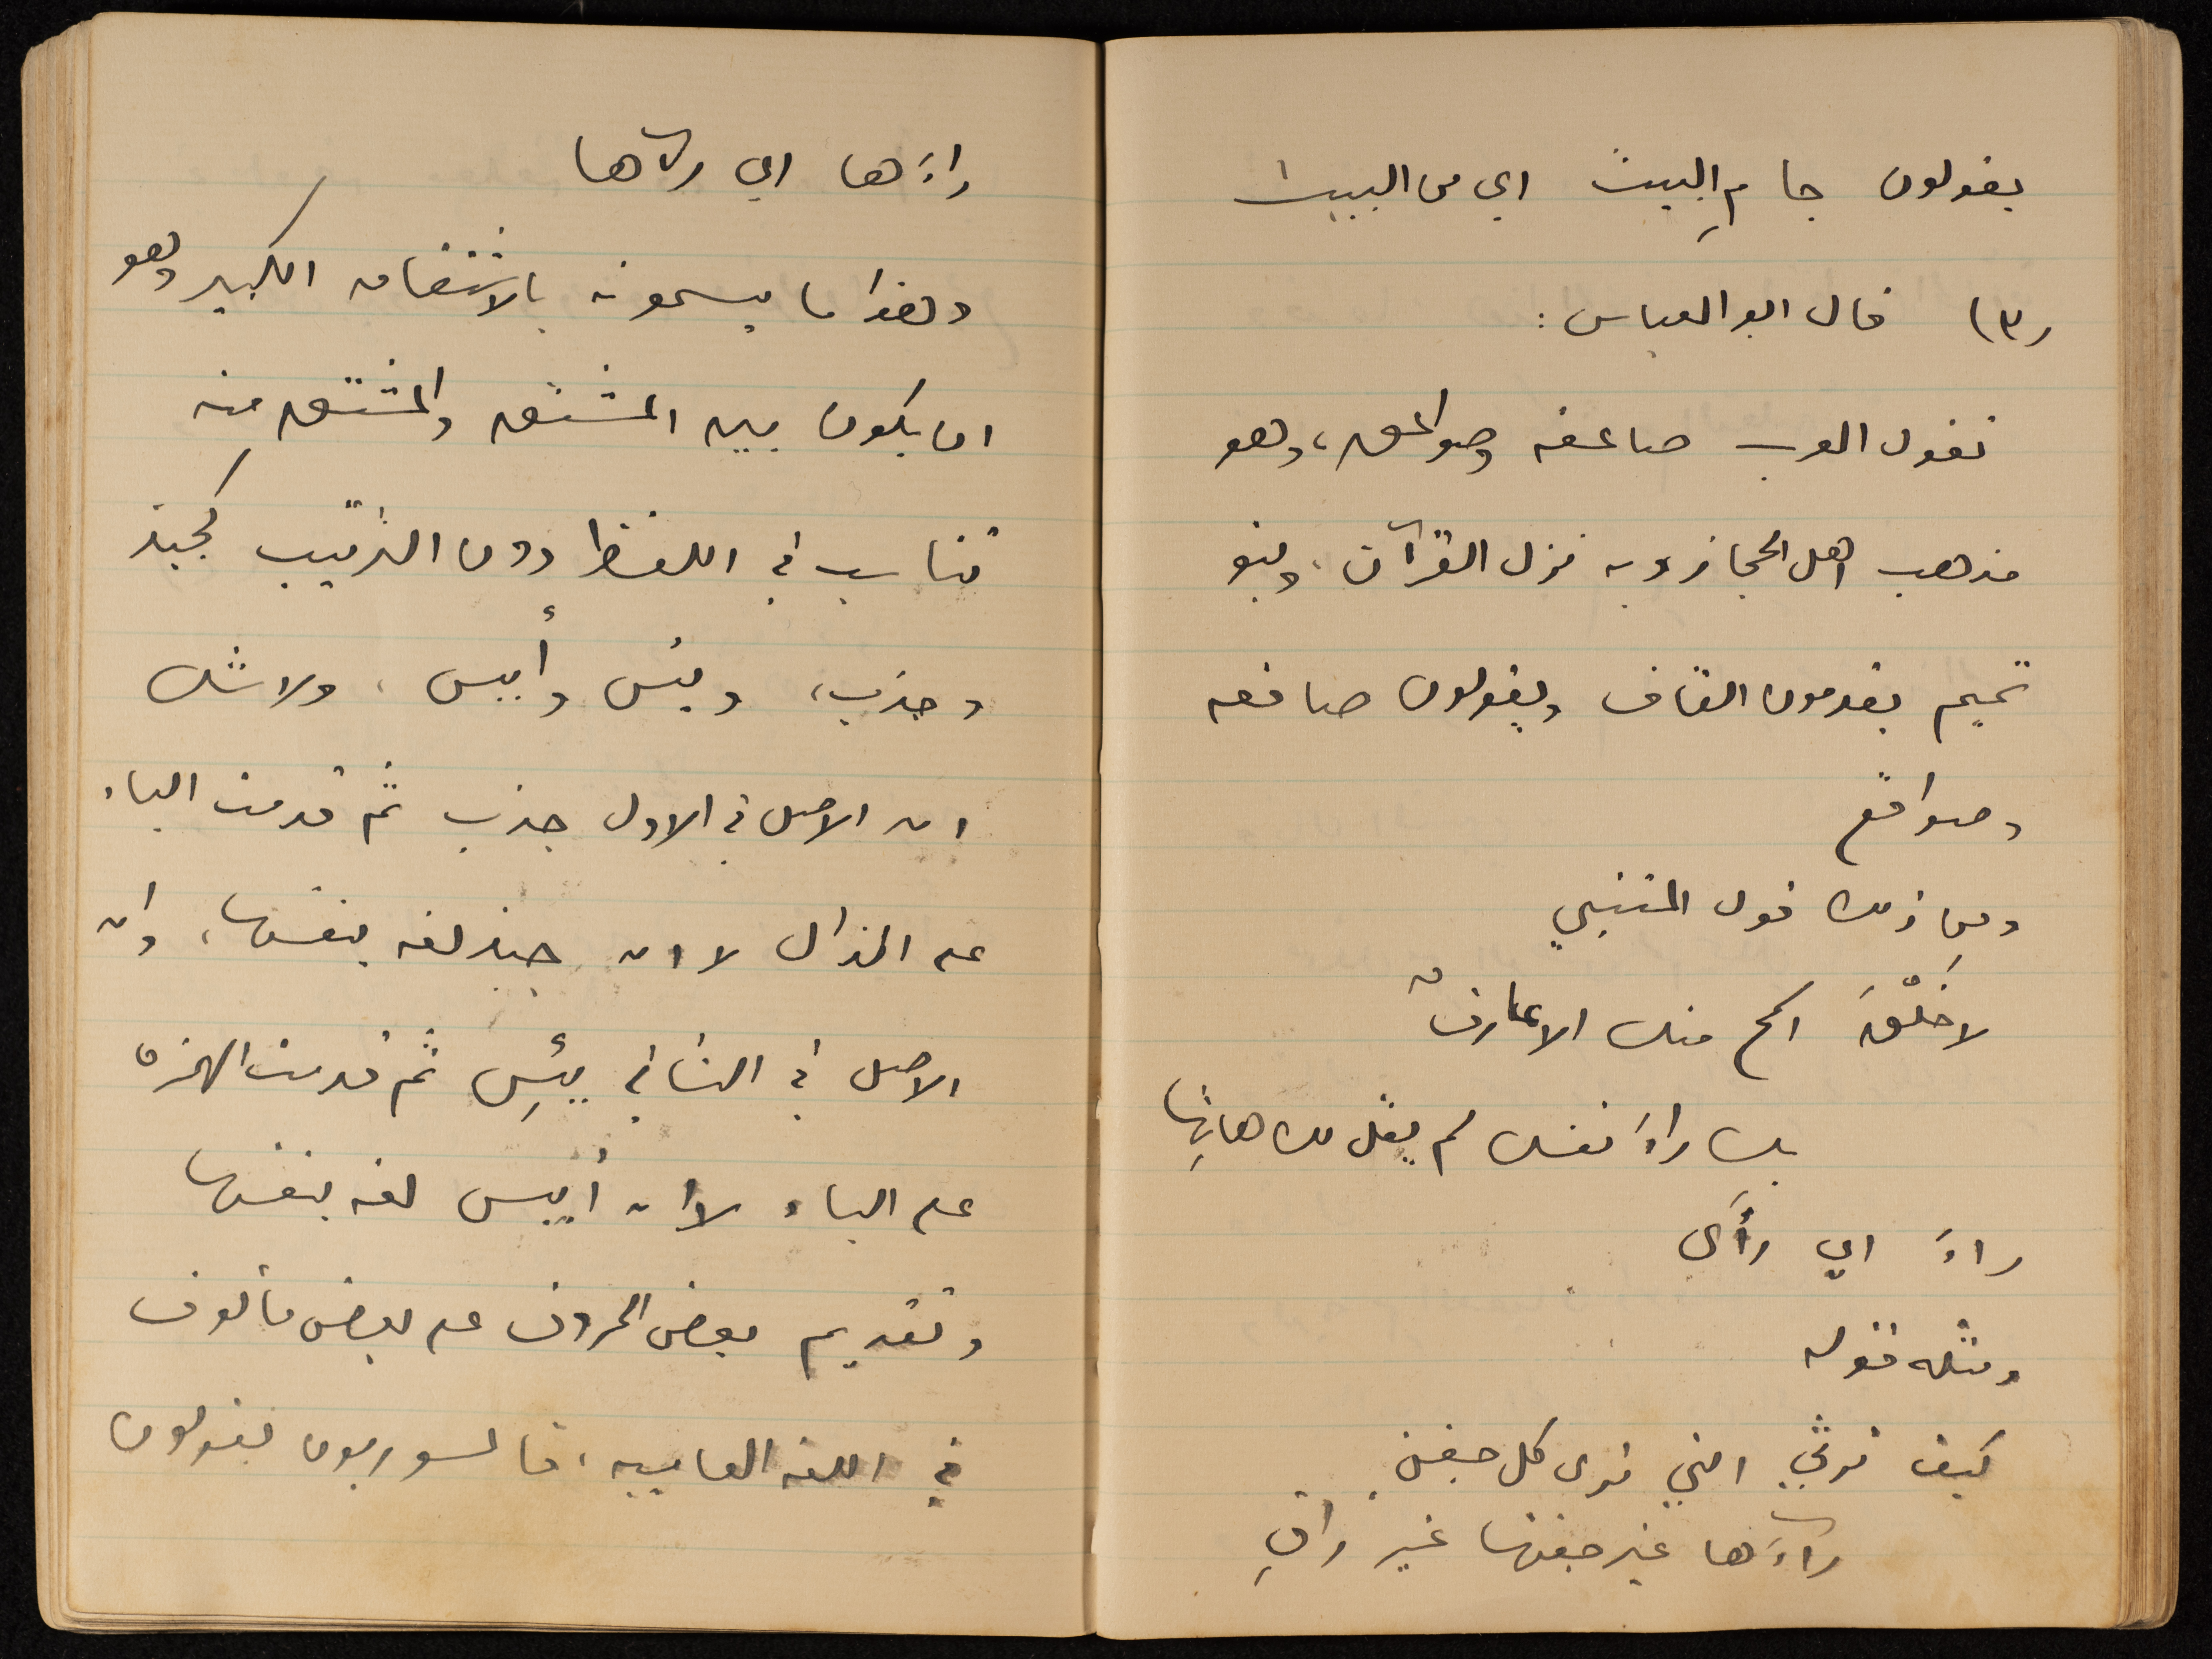 يقولون جا مِ البيت اي من البيت
(٣) قال ابو العباس :
تقول العرب صاعقه وصواعق، وهو
مذهب اهل الحجاز وبه نزل القرآن، وبنو
تميم يقدمون القاف ويقولون صاقعه
وصواقع
ومن ذلك قول المتنبي
لا خَلْقَ اسمح منك الا عارفٌ
بك راءَ نفسك لم يقل لك هاتِها
راءَ اي رأَى
ومثله قوله
كيف ترثي التي ترى كل جفنٍ
راءَها غير جفنها غير راقِ
راءَها اي رآها
وهذا ما يسمونه بالاشتقاق الكبير وهو
ان يكون بين المشتق والمشتق منه
تناسب في اللفظ دون الترتيب كجبذ
وجذب، ويئس وأيس، ولا شك
ان الاصل في الاول جذب ثم قدمت الباء
على الذال لا ان جبذ لغه بنفسها، وان
الاصل في الثاني يئِس ثم قدمت الهمزه
على الياء لا ان أيس لغه بنفسها
وتقديم بعض الحروف على بعض مألوف
في اللغه العاميه، فالسوريون يقولون